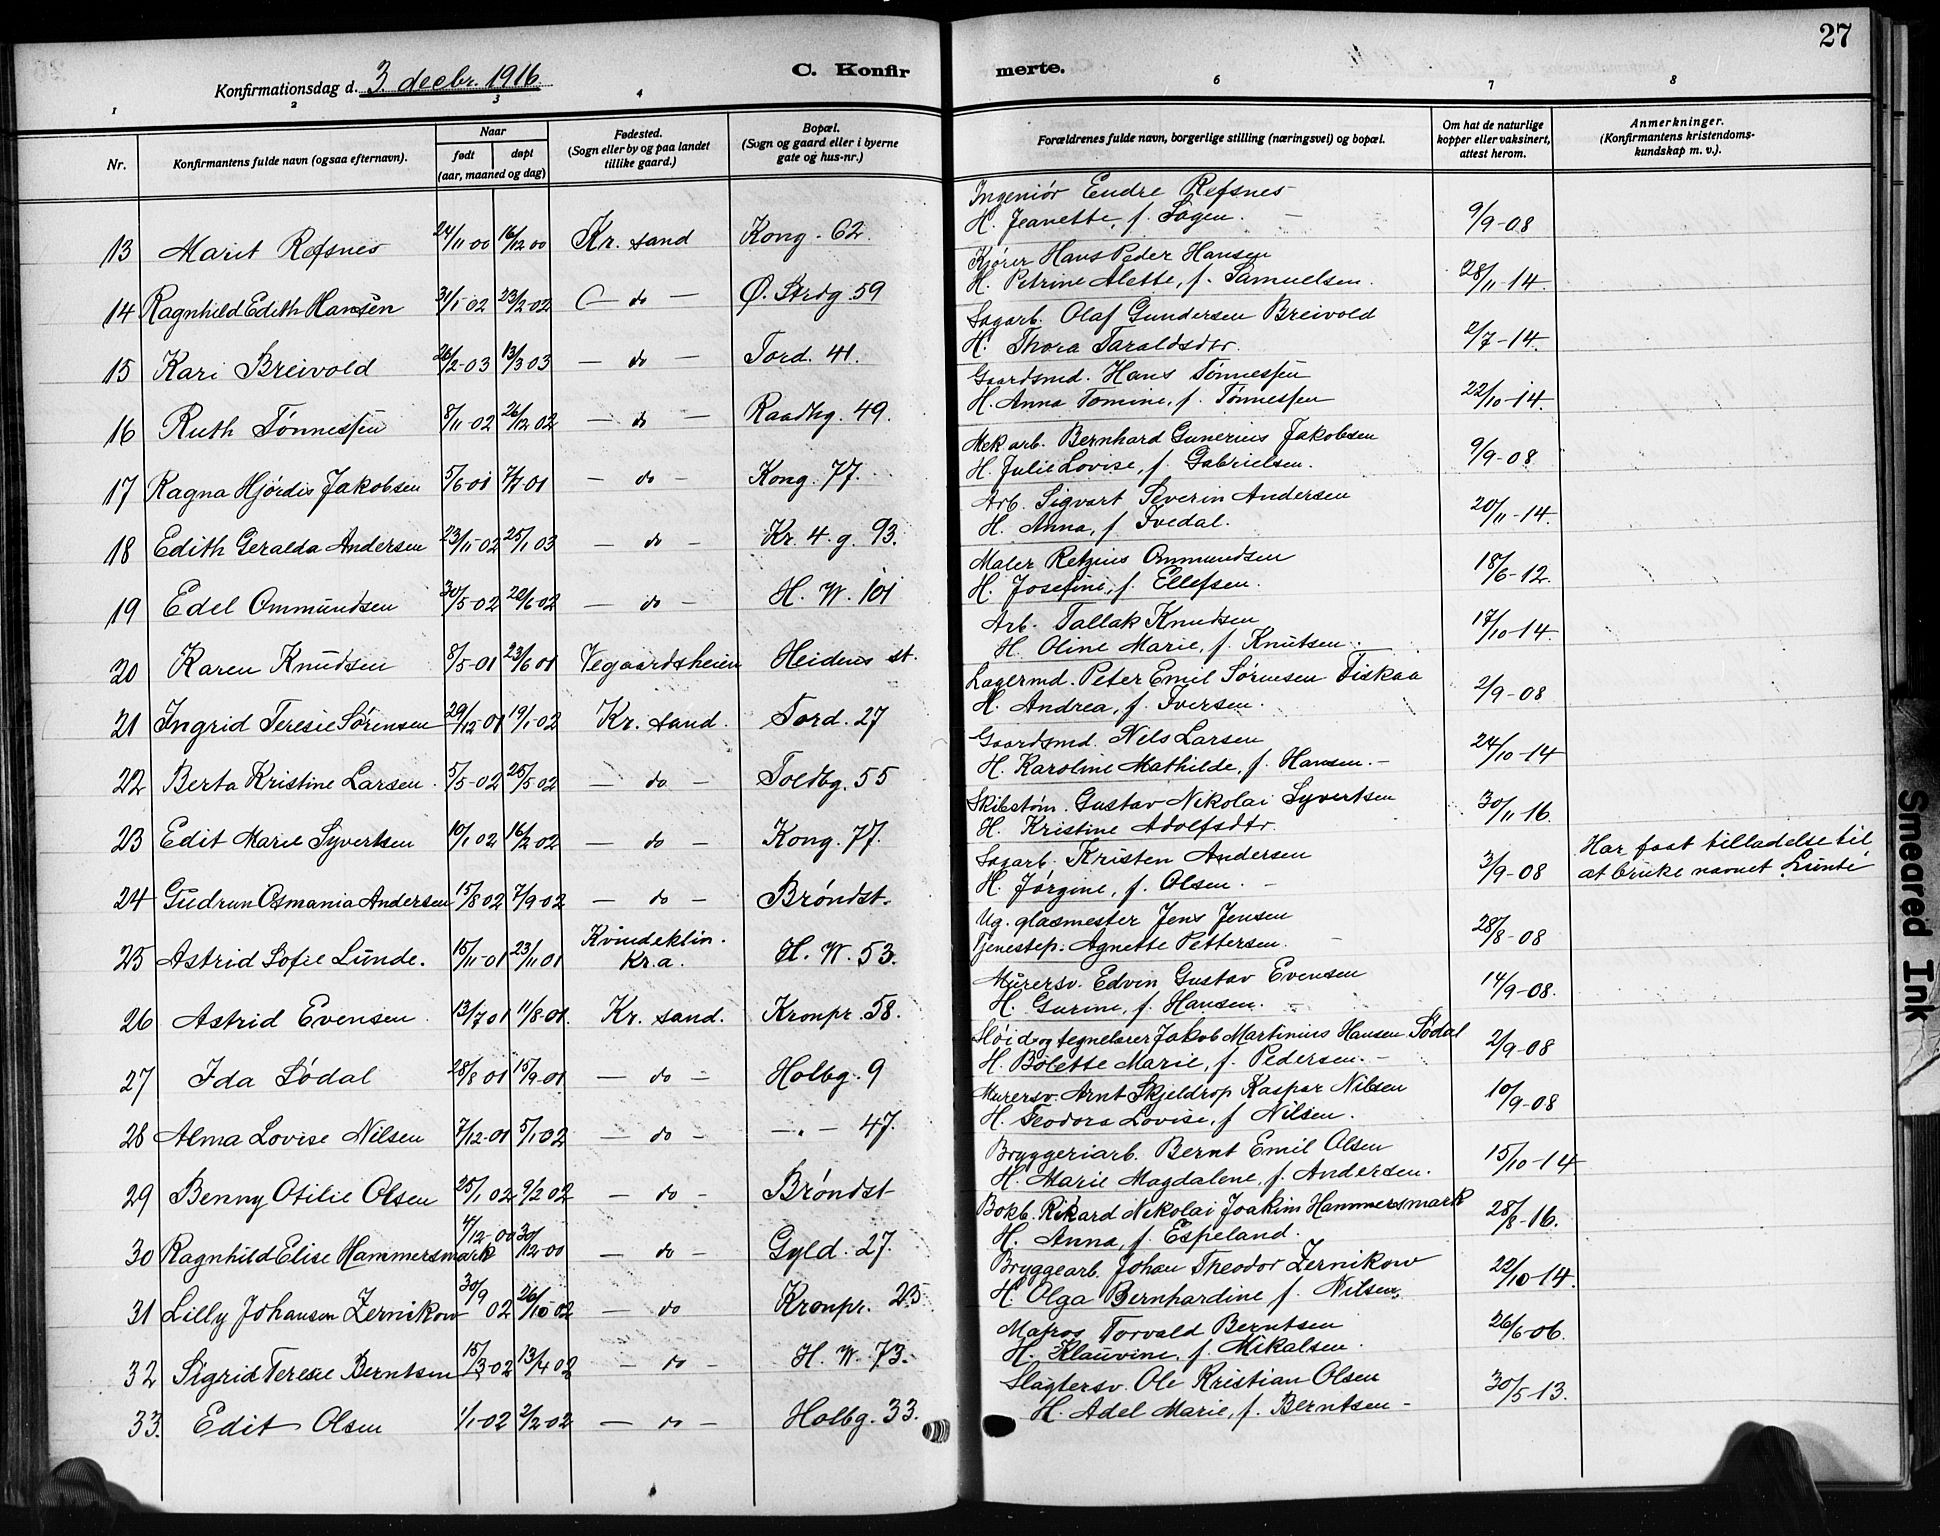 27
Konfirmationsdag d. 3. decbr. 1916.
C. Konfir merte.
1 2 3 4 6 7 8
Nr.
Konfirmantens fulde navn (ogsaa efternavn).
Naar
født døpt
(aar, maaned og dag)
Fødested.
(Sogn eller by og paa landet
tillike gaard.)
Bopæl.
(Sogn og gaard eller i byerne
gate og hus-nr.)
Forældrenes fulde navn, borgerlige stilling (næringsvei) og bopæl.
Om hat de naturlige
kopper eller vaksinert,
attest herom.
Anmerkninger.
(Konfirmantens kristendoms-
kundskap m. v.).
Ingeniør Endre Refsnes
13 Marit Refsnes 24/11 00 16/12 00 Kr. sand Kong. 62. H. Jeanette, f. Sagen. – 9/9-08
Kjører Hans Peder Hansen
14 Ragnhild Edith Hansen 31/1-02 23/2-02 – do – Ø. Strdg 59 H. Petrine Alette, f. Samuelsen. 28/11-14.
Sagarb. Olaf Gundersen Breivold
15 Kari Breivold 26/2-03 13/3 03 – do – Tord. 41. H. Thora Taraldsdtr. 2/7-14.
Gaardsmd. Hans Tønnessen
16 Ruth Tønnessen 8/11-02 26/12 02 – do – Raadhg. 49. H. Anna Tomine, f. Tønnessen 22/10-14.
Mek arb. Bernhard Gunerius Jakobsen
17 Ragna Hjørdis Jakobsen 5/6-01 7/7-01 – do – Kong. 77. H. Julie Lovise, f. Gabrielsen. 9/9-08
Arb. Sigvart Severin Andersen
18 Edith Geralda Andersen 23/11-02 25/1 03 – do – Kr. 4. g. 93. H. Anna, f. Ivedal. 20/11-14.
Maler Retzius Ommundsen
19 Edel Ommundsen 30/5-02 22/6-02 – do – H. W. 101 H. Josefine, f. Ellefsen. 18/6-12.
Arb. Tallak Knudsen
20 Karen Knudsen 8/5-01 23/6 01 Vegaardsheien Heidens st. H. Oline Marie, f. Knutsen. 17/10-14
Lagermd. Peter Emil Sørensen Fiskaa
21 Ingrid Teresie Sørensen 29/12-01 19/1-02 Kr. sand. Tord. 27 H. Andrea, f. Iversen. 2/9-08
Gaardsmd. Nils Larsen
22 Berta Kristine Larsen 5/5-02 25/5 02 – do – Toldbg. 55 H. Karoline Mathilde, f. Hansen. – 24/10-14
Skibstøm. Gustav Nikolai Syvertsen
23 Edit Marie Syvertsen 10/1 02 16/2-02 – do – Kong. 77. H. Kristine Adolfsdtr. 30/11 16.
Sagarb. Kristen Andersen Har faat tilladelse til
24 Gudrun Osmania Andersen 15/8 02 7/9-02 – do – Brøndst. H. Jørgine, f. Olsen. – 3/9-08 at bruke navnet Lunde
Ug. glasmester Jens Jensen
25 Astrid Sofie Lunde. 15/11-01 23/11 01 Kvindeklin. Kr.a. H. W. 53. Tjenestep. Agnette Pettersen. – 28/8-08
Murersv. Edvin Gustav Evensen
26 Astrid Evensen 13/7 01 11/8-01. Kr. sand. Kronpr. 58. H. Gurine, f. Hansen. – 14/9-08.
Sløid og tegnelærer Jakob Martinius Hansen Sødal
27 Ida Sødal 28/8 01 15/9-01 – do – Holbg. 9 H. Bolette Marie, f. Pedersen. – 2/9-08
Murersv. Arnt Skjeldrop Kaspar Nilsen
28 Alma Lovise Nilsen 7/12-01 5/1-02 – do – – „ – 47. H. Teodora Lovise, f. Nilsen. 10/9-08
Bryggeriarb. Bernt Emil Olsen
29 Benny Otilie Olsen 25/1 02 9/2 02 – do – Brøndst H. Marie Magdalene, f. Andersen. 15/10-14
Bokb. Rikard Nikolai Joakim Hammersmark
30 Ragnhild Elise Hammersmark 4/12-00 30/12-00 – do – Gyld. 27. H. Anna, f. Espeland. 28/8-16.
Bryggearb. Johan Theodor Zernikow
31 Lilly Johansen Zernikow 30/9 02 26/10-02 – do Kronpr. 25 H. Olga Bernhardine f. Nilsen. 22/10-14.
Matros Torvald Berntsen
32 Sigrid Terese Berntsen 15/3-02 13/4 02 – do – H. W. 73. H. Klauvine, f. Mikalsen. 26/6-06.
Slagtersv. Ole Kristian Olsen
33. Edit Olsen 1/1-02 2/2-02 – do – Holbg. 33. H. Adel Marie, f. Berntsen – 30/5-13.
Smeared Ink